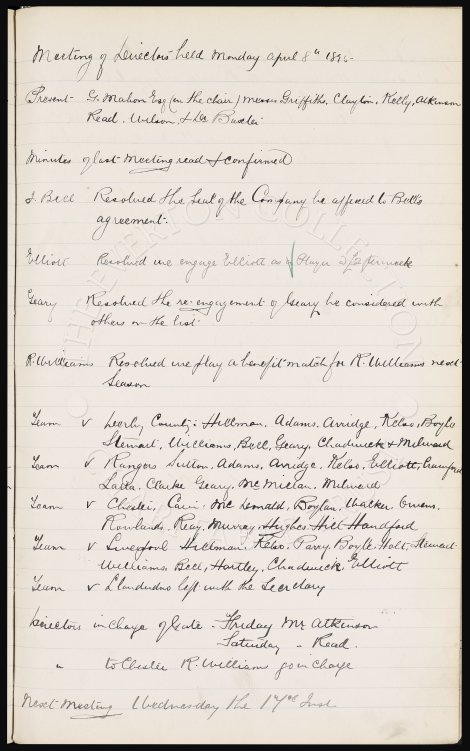 Meeting of Directors held Monday April 8th 1895
Present - G. Mahon Esq (in the chair) Messrs Griffiths, Clayton, Kelly, Atkinson
Read. Wilson, & Dr Baxter
Minutes of last Meeting read & confirmed
J. Bell Resolved the Seal of the Company be affixed to Bell's
agreement.
Elliott Resolved we engage Elliott as a Player @ £2 per week
Geary Resolved the re-engagement of Geary be considered with
others on the list
R. Williams Resolved we play a benefit match for R. Williams next
Season
Team v Derby County: Hillman. Adams. Arridge, Kelso, Boyle
Stewart, Williams, Bell, Geary, Chadwick & Milward
Team v Rangers Sutton, Adams, Arridge, Kelso, Elliott, Crawford
Latta. Clarke Geary. McMillan. Milward
Team v Chester, Cain. McDonald, Boylan, Walker, Owens,
Rowlands, Reay, Murray, Hughes, Hill Handford
Team v Liverpool Hillman. Kelso, Parry, Boyle, Holt, Stewart
Williams, Bell, Hartley, Chadwick, Elliott
Team v Llandudno left with the Secretary
Directors in Charge of Gate - Friday Mr Atkinson
Saturday " Read.
" to Chester R. Williams go in Charge
Next Meeting Wednesday the 17th Inst
THE EVERTON COLLECTION